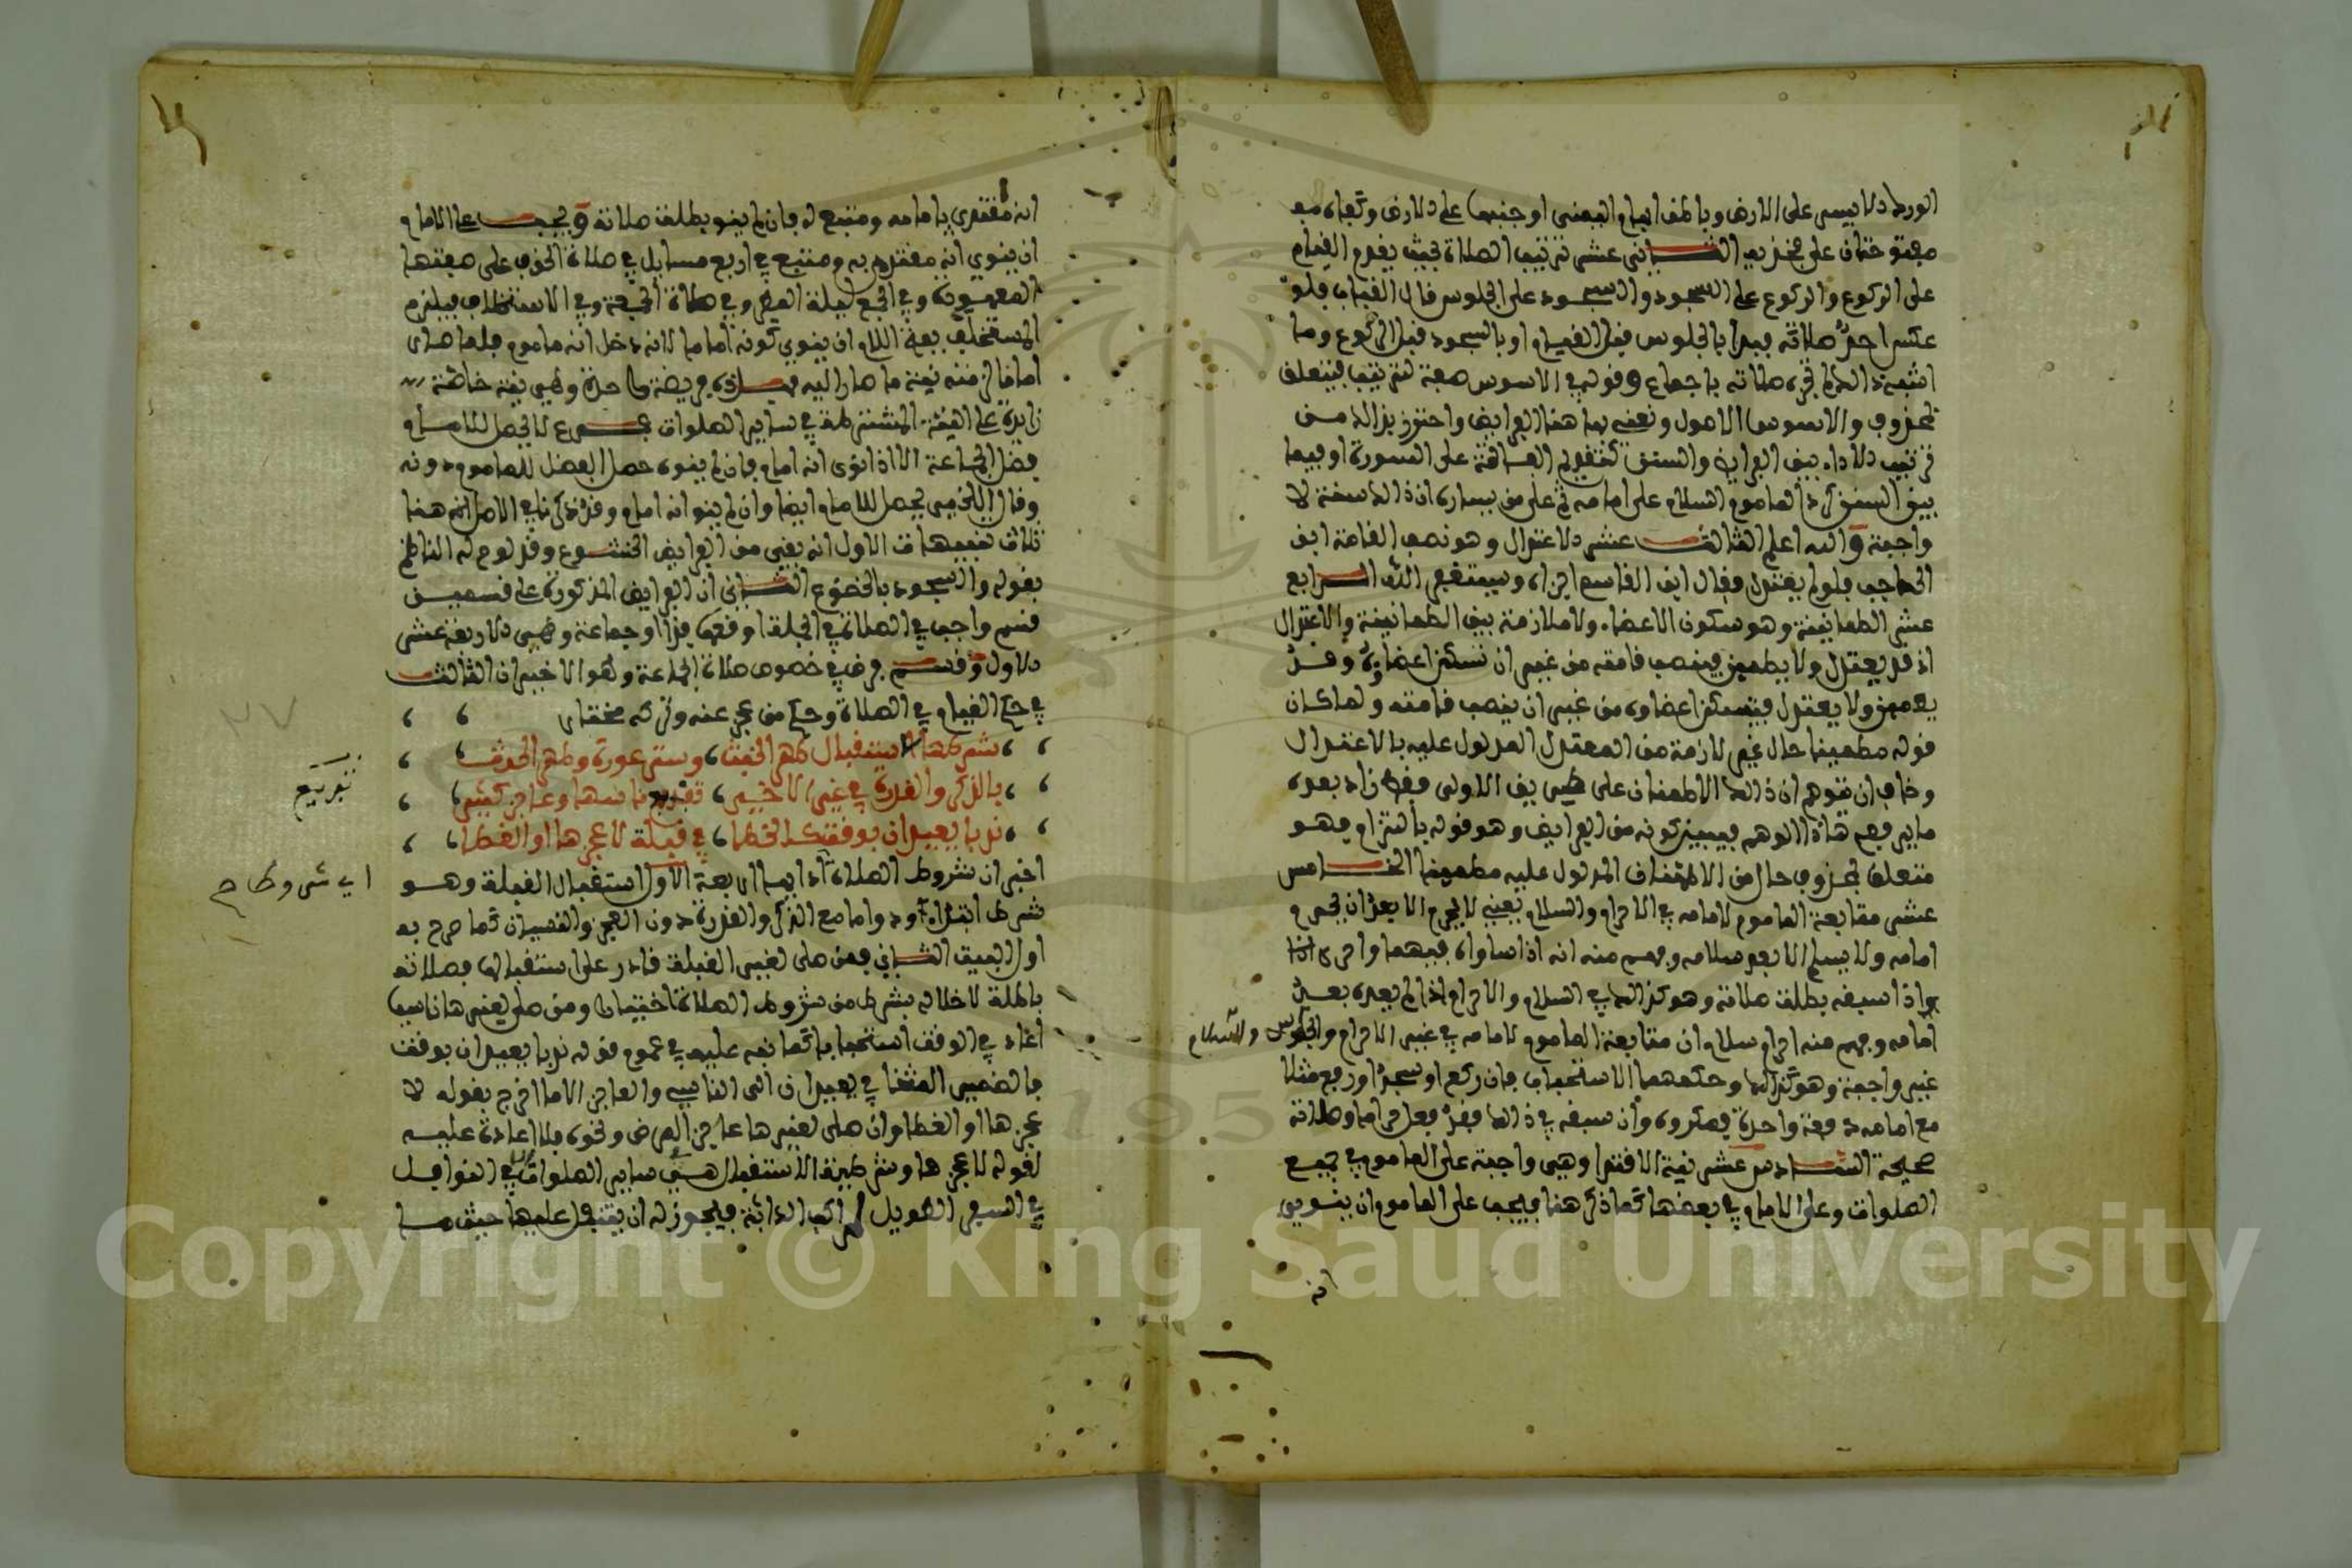 الورك الايسر على الارض وباطن ابهام اليمنى او جنبها على الارض وكفاه مف
مفتوحتان على فخذيه الثاني عشر ترتيب الصلاة بحيث يقدم القيام
على الركوع والركوع على السجود والسجود على الجلوس قال القباب فلو
عكس احد صلاته فبدا بالجلوس قبل القيام او بالسجود قبل الركوع وما
اشبه ذلك لم تجزه صلاته باجماع وقوله في الاسوس صفة لترتيب فيتعلق
بمحذوف والاسوس الاصول ونعني بها هنا الفرايض واحترز بذلك من
ترتيب الاداء بين الفرايض والسنن كتقديم الفاتحة على السورة او فيما
بين السنن كرد الماموم السلام على امامه ثم على من يساره ان ذلك سنة لا
واجبة والله اعلم الثالث عشر الاعتدال وهو نصب القامة ابن
الحاجب فلو لم يعتدل فقال ابن القاسم اجزاه ويستغفر الله الرابع
عشر الطمانينة وهو سكون الاعضاء ولا ملازمة بين الطمانينة والاعتدال
اذ قد يعتدل ولا يطمين فينصب قامته من غير ان تسكن اعضاوه وقد
يطمين ولا يعتدل فتسكن اعضاوه من غير ان ينصب قامته ولما كان
قوله مطمينا حال غير لازمة من المعتدل المدلول عليه بالاعتدال
وخاف ان يتوهم ان ذلك الاطمنان على طريق الاولى فقط زاد بعده
ما يرفع هاذا الوهم فيبين كونه من الفرايض وهو قوله بالتزام فهو
متعلق بمحذوف حال من الاطمئنان المدلول عليه مطمينا الخامس
عشر متابعة الماموم لامامه في الاحرام والسلام يعني لا يحرم الا بعد ان يحرم
امامه ولا يسلم الا بعد سلامه وفهم منه انه اذا ساواه فيهما او احرى اذا
واذا سبقه بطلت صلاته وهو كذلك في السلام والاحرام اذا لم يعده بعد
امامه وفهم منه احرام سلام ان متابعة الماموم لامامه في غير الاحرام والجلوس والسلام
غير واجبة وهو كذلك وحكمهما الاستحباب فان ركع او سجد او رفع مثلا
مع امامه دفعة واحدة فمكروه وان سبقه في ذلك فقد فعل حراما وصلاته
صحيحة السادس عشر نية الاقتدا وهي واجبة على الماموم في جميع
الصلوات وعلى الامام في بعضها كما ذكر هنا فيجب على الماموم ان ينوي
انه
انه مقتدي بامامه ومتبع له فان لم ينو بطلت صلاته ويجب على الامام
ان ينوي انه مقتدى به ومتبع في اربع مسايل في صلاة الخوف على صفتها
المعهودة وفي الجمع ليلة المطر وفي صلاة الجمعة وفي الاستخلاف فيلزم
المستخلف بفتح اللام ان ينوي كونه اماما لانه دخل انه ماموم فلما صار
اماما لزمته نية ما صار اليه
زايدة على النية المشترطة في ساير الصلوات فرع لا يحصل للامام
فضل الجماعة الا اذا نوى انه امام فان لم ينوه حصل الفضل للماموم دونه
وقال اللخمي يحصل للامام ايضا وان لم ينو انه امام وقد ذكرنا في الاصل انه هنا
ثلاث تنبيهات الاول انه بقي من الفرايض الخشوع وقد لوح له الناظم
بقوله والسجود بالخضوع الثاني ان الفرايض المذكورة على قسمين
قسم واجب في الصلاة في الجملة اوقعها فذا او جماعة وهي الاربعة عشر
الاول وقسم فرض في خصوص صلاة الجماعة وهو الاخيران الثالث
في حكم القيام في الصلاة وحكم من عجز عنه وتركه مختار
شرطها الاستقبال طهر الخبث وستر عورة وطهر الحدث
بالذكر والقدرة في غير الاخير تفريع ناسيها وعاجز كثير
ندبا يعيدان بوقت كالخطا في قبلة لا عجزها او الغطا
اخبر ان شروط الصلاة اداءها اربعة الاول استقبال القبلة وهو
شرط ابتداء ودواما مع الذكر والقدرة دون العجز والنسيان كما صرح به
اول البيت الثاني فمن صلى لغير القبلة قادر على استقبالها فصلاته
باطلة لاخلاله بشرط من شروط الصلاة اختيارا ومن صلى لغيرها ناسيا
اعاد في الوقت استحبابا كما نبه عليه في عموم قوله ندبا يعيدان بوقت
فالضمير المثنا في يعيدان الى الناسي والعاجز الا ما اخرج بقوله لا
عجزها او الغطا وان صلى لغيرها عاجز المرض ونحوه فلا اعادة عليه
لقوله لا عجزها وشرطية الاستقبال هي في ساير الصلوات الا في النوافل
في السفر الطويل لراكب الدابة فيجوز له ان يتنفل عليها حيث ما
تفريع
اي شروطها
Copyright © King Saud University
195